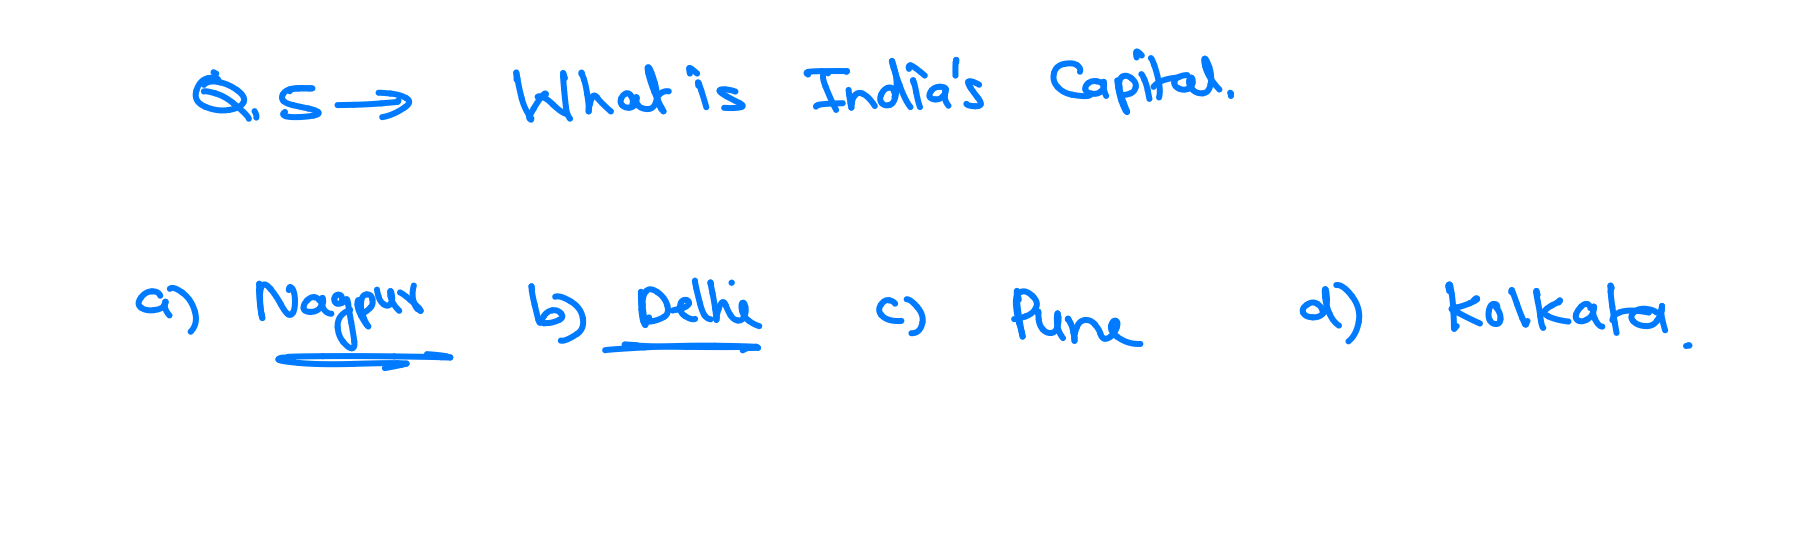 Q.5→ What is India's Capital.
a) Nagpur b) Delhi c) Pune d) Kolkata.